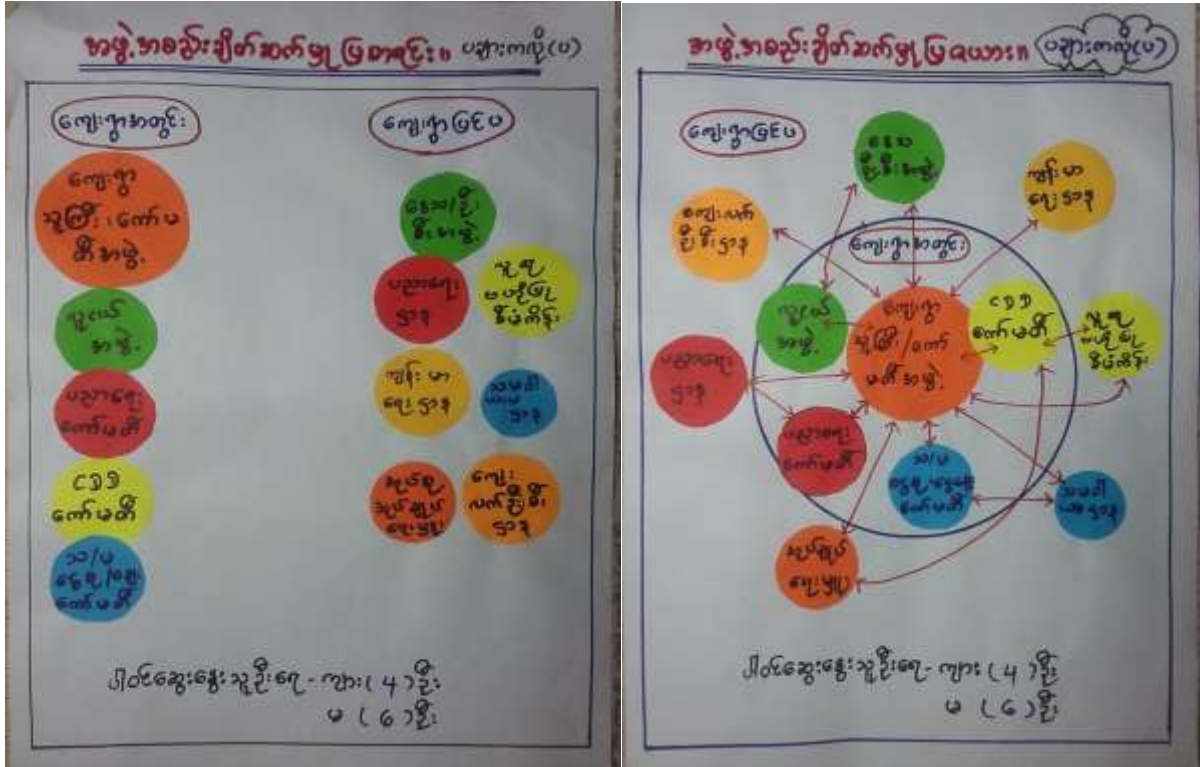 အဖွဲ့အစည်းချိတ်ဆက်မှုပြစာရင်း။ ပဍားကလို(ပ)
ကျေးရွာအတွင်း
ကျေးရွာပြင်ပ
ကျေးရွာ
သူကြီး၊ကော်မ
တီအဖွဲ့
လူငယ်
အဖွဲ့
ပညာရေး
ကော်မတီ
CDD
ကော်မတီ
သ/မ
ကော်မတီ
ဒေသ/ဦး
စီးအဖွဲ့
ပညာရေး
ဌာန
လူမှု
ဗဟိုပြု
စီမံကိန်း
ကျန်းမာ
ရေးဌာန
သမဝါ
ယမ
ဌာန
အုပ်ချုပ်
ရေးမှူး
ကျေး
လက်ဦးစီး
ဌာန
ပါဝင်ဆွေးနွေးသူဦးရေ-ကျား(4)ဦး
မ (6)ဦး
အဖွဲ့အစည်းချိတ်ဆက်မှုပြဇယား။ ပဍားကလို(ပ)
ကျေးရွာပြင်ပ
ဒေသ
ဦးစီးအဖွဲ့
ကျန်းမာ
ရေးဌာန
ကျေးလက်
ဦးစီးဌာန
ကျေးရွာအတွင်း
လူငယ်
အဖွဲ့
ကျေးရွာ
သူကြီး/ကော်
မတီအဖွဲ့
CDD
ကော်မတီ
လူမှု
ဗဟိုပြု
စီမံကိန်း
ပညာရေး
ဌာန
ပညာရေး
ကော်မတီ
သ/မ
ကော်မတီ
သမဝါ
ယမဌာန
အုပ်ချုပ်
ရေးမှူး
ပါဝင်ဆွေးနွေးသူဦးရေ-ကျား(4)ဦး
မ (6)ဦး